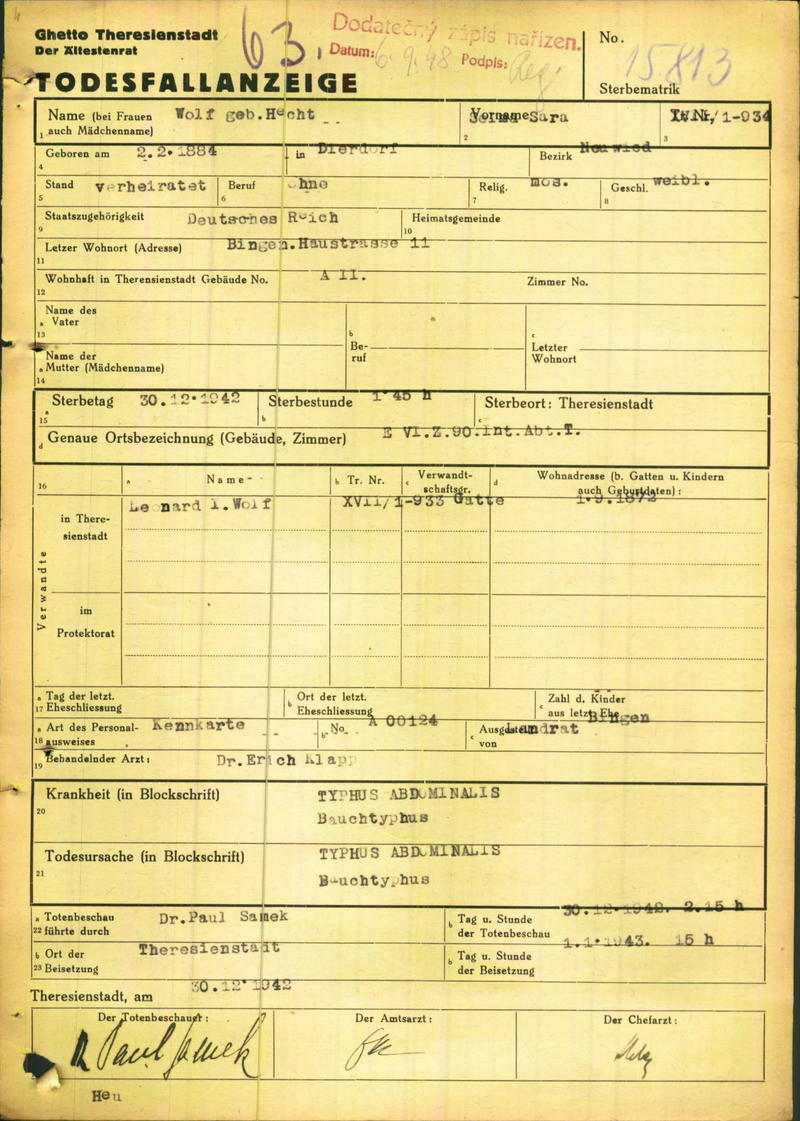 Ghetto Theresienstadt
Der Ältestenrat
63
Dodatečný zápis nařízen.
Datum: 6.9.48 Podpis:
No. 15813
Sterbematrik
TODESFALLANZEIGE
Name (bei Frauen auch Mädchenname) Wolf geb.Hecht
1
Vorname Sara
2
Tr.Nr. /1-934
3
Geboren am 2.2.1884 in Dierdorf Bezirk Neuwied
4
Stand verheiratet Beruf ohne Relig. mos. Geschl. weibl.
5 6 7 8
Staatszugehörigkeit Deutsches Reich Heimatsgemeinde
9 10
Letzer Wohnort (Adresse) Bingen.Haustrasse 11
11
Wohnhaft in Therensienstadt Gebäude No. A II. Zimmer No.
12
Name des
a Vater
13
b Beruf
c Letzter Wohnort
Name der
a Mutter (Mädchenname)
14
Sterbetag 30.12.1942 Sterbestunde 1 45 h Sterbeort: Theresienstadt
a 15 b c
d Genaue Ortsbezeichnung (Gebäude, Zimmer) E VI.Z.90.Int.Abt.T.
16 a Name b Tr. Nr. c Verwandtschaftsgr. d Wohnadresse (b. Gatten u. Kindern auch Geburtdaten):
Verwandte
in Theresienstadt Leonard I.Wolf XVII/1-933 Gatte 1.9.1872
im Protektorat
a Tag der letzt. Eheschliessung
17
b Ort der letzt. Eheschliessung
c Zahl d. Kinder aus letzt. Ehe
a Art des Personalausweises Kennkarte b No. A 00124 c Ausgestellt von Landrat Bingen
18
Behandelnder Arzt: Dr.Erich Klapp
19
Krankheit (in Blockschrift) TYPHUS ABDOMINALIS
20 Bauchtyphus
Todesursache (in Blockschrift) TYPHUS ABDOMINALIS
21 Bauchtyphus
a Totenbeschau
22 führte durch Dr.Paul Samek
b Tag u. Stunde der Totenbeschau 30.12.1942. 2.15 h
b Ort der
23 Beisetzung Theresienstadt
b Tag u. Stunde der Beisetzung 1.1.1943. 15 h
Theresienstadt, am 30.12.1942
Der Totenbeschauer: Der Amtsarzt: Der Chefarzt:
Paul Samek
Heu